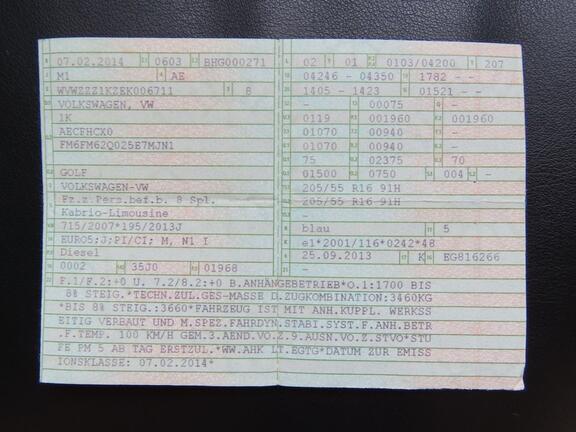 07.02.2014 0603 BHG000271
M1 AE
WVWZZZ1KZEK006711 8
VOLKSWAGEN, VW
1K
AECFHCX0
FM6FM62Q025E7MJN1
GOLF
VOLKSWAGEN-VW
Fz.z.Pers.bef.b. 8 Spl.
Kabrio-Limousine
715/2007*195/2013J
EURO5;J;PI/CI; M, N1 I
Diesel
0002 35J0 01968
02 01 0103/04200 207
04246 - 04350 1782 - -
1405 - 1423 01521 - -
- 00075 -
0119 001960 001960
01070 00940 -
01070 00940 -
75 02375 70
01500 0750 004 -
205/55 R16 91H
205/55 R16 91H
-
blau 5
e1*2001/116*0242*48
25.09.2013 K EG816266
F.1/F.2:+0 U. 7.2/8.2:+0 B.ANHÄNGEBETRIEB*O.1:1700 BIS
8% STEIG.*TECHN.ZUL.GES-MASSE D.ZUGKOMBINATION:3460KG
*BIS 8% STEIG.:3660*FAHRZEUG IST MIT ANH.KUPPL. WERKSS
EITIG VERBAUT UND M.SPEZ.FAHRDYN.STABI.SYST.F.ANH.BETR
.F.TEMP. 100 KM/H GEM.3.AEND.VO.Z.9.AUSN.VO.Z.STVO*STU
FE PM 5 AB TAG ERSTZUL.*WW.AHK LT.EGTG*DATUM ZUR EMISS
IONSKLASSE: 07.02.2014*